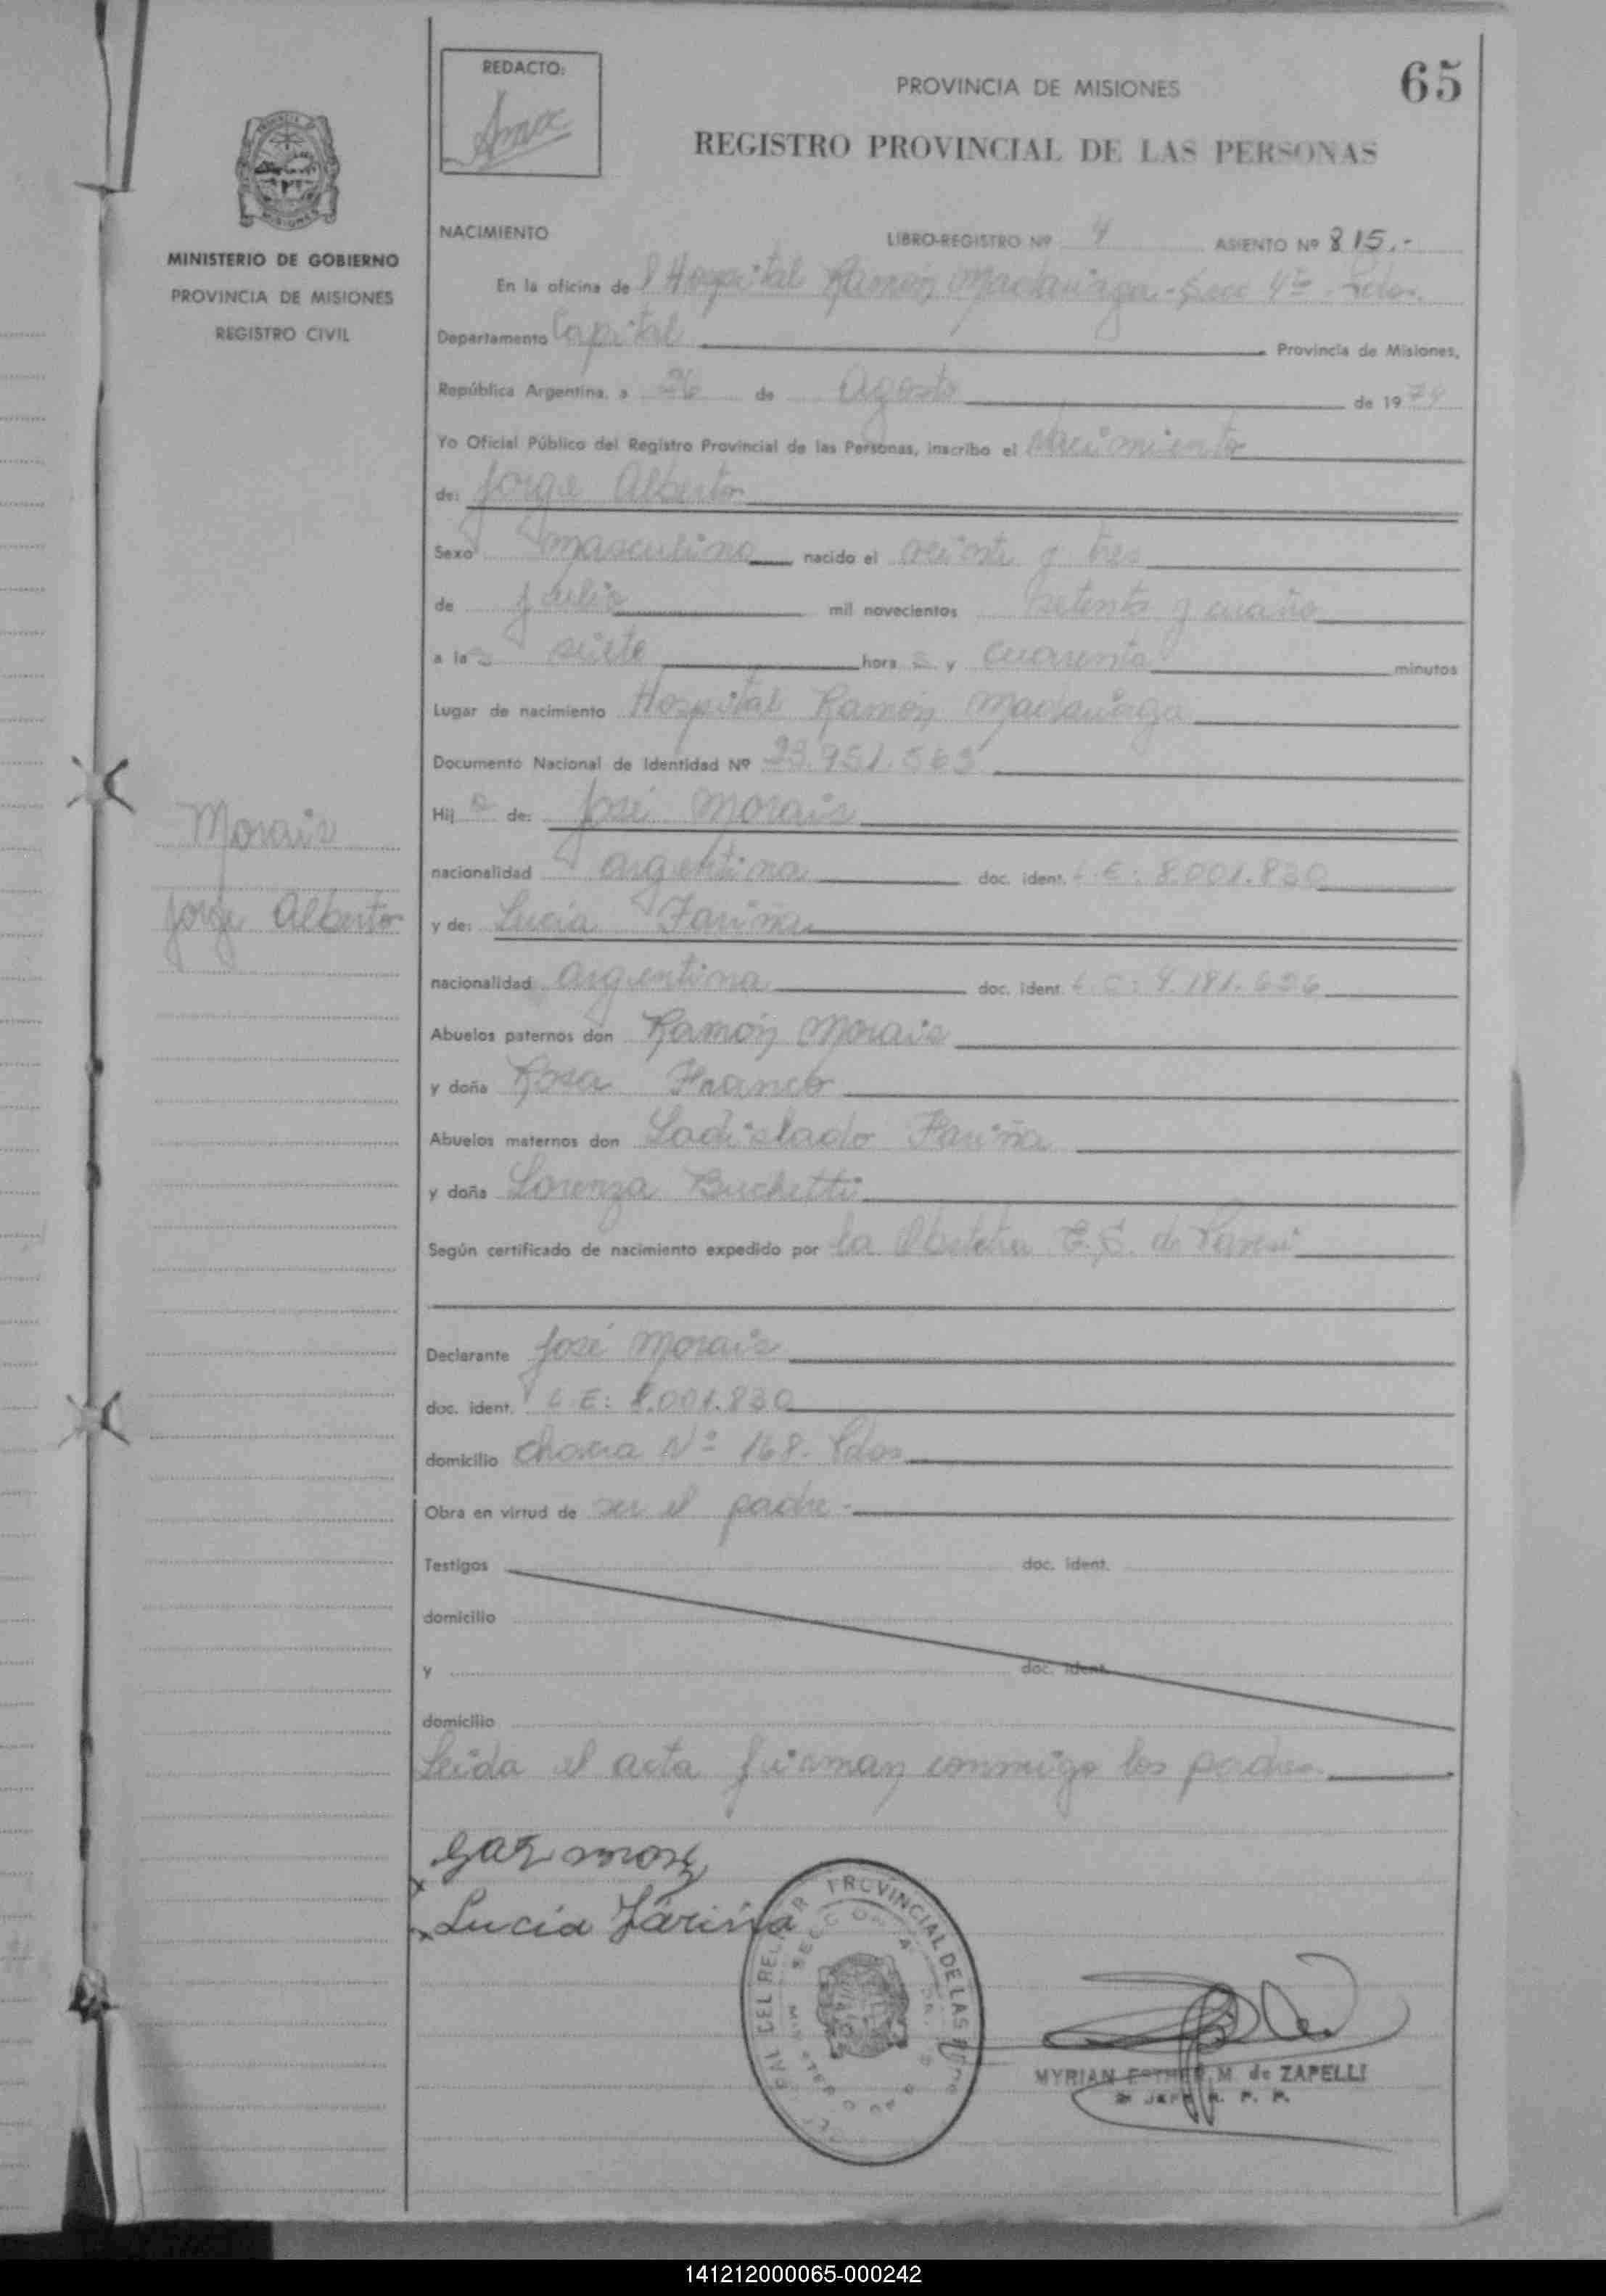 65
REDACTO:
PROVINCIA DE MISIONES
REGISTRO PROVINCIAL DE LAS PERSONAS
MINISTERIO DE GOBIERNO
PROVINCIA DE MISIONES
REGISTRO CIVIL
NACIMIENTO LIBRO-REGISTRO Nº 4 ASIENTO Nº 815.-
En la oficina del Hospital Ramón Madariaga - Secc 4ta - Pdas.
Departamento Capital Provincia de Misiones,
República Argentina, a 26 de Agosto de 1974
Yo Oficial Público del Registro Provincial de las Personas, inscribo el nacimiento
de: Jorge Alberto
Sexo masculino nacido el veinte y tres
de julio mil novecientos setenta y cuatro
a las siete horas y cuarenta minutos
Lugar de nacimiento Hospital Ramón Madariaga
Documento Nacional de Identidad Nº 23.951.563
Hijo de: José Morais
nacionalidad argentina doc. ident. L.E: 8.001.830
y de: Lucía Fariña
nacionalidad argentina doc. ident. L.C: 4.181.626
Abuelos paternos don Ramón Morais
y doña Rosa Franco
Abuelos maternos don Ladislado Fariña
y doña Lorenza Buchetti
Según certificado de nacimiento expedido por la Obstetra E. de
Declarante José Morais
doc. ident. L E: 8.001.830
domicilio Chacra Nº 168. Pdas
Obra en virtud de ser el padre.
Testigos doc. ident.
domicilio
y doc. ident.
domicilio
Leída el acta firman conmigo los padres
Morais
Jorge Alberto
x
x Lucia Fariña
PROVINCIAL DE LAS
SECCION
MYRIAN ESTHER M. de ZAPELLI
JEFE R. P. P.
141212000065-000242